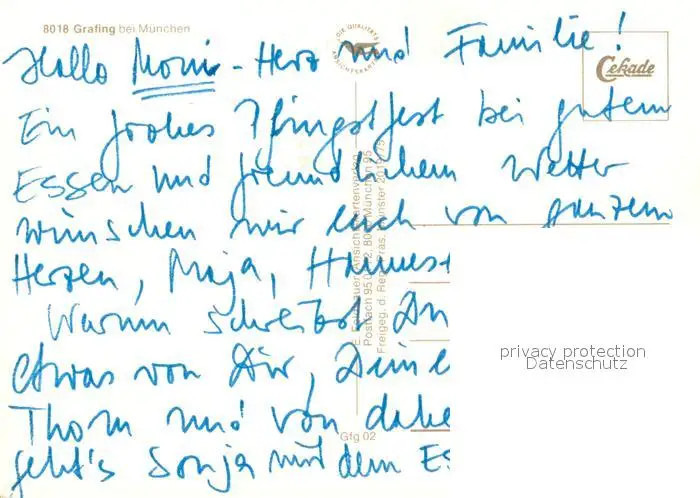 8018 Grafing bei München
DIE QUALITÄTS
ANSICHTSKARTE
Cekade
Hallo Moni-Herz und Familie!
Ein frohes Pfingstfest bei gutem
Essen und freundlichem Wetter
wünschen wir euch von ganzem
Herzen, Maja, Hannes+
Warum schreibst Du
etwas von Dir, Deine
Thom und von dahe
geht's Sonja mit dem Es
Postfach 95 02 2, 80 München 95
Gfg 02
privacy protection
Datenschutz